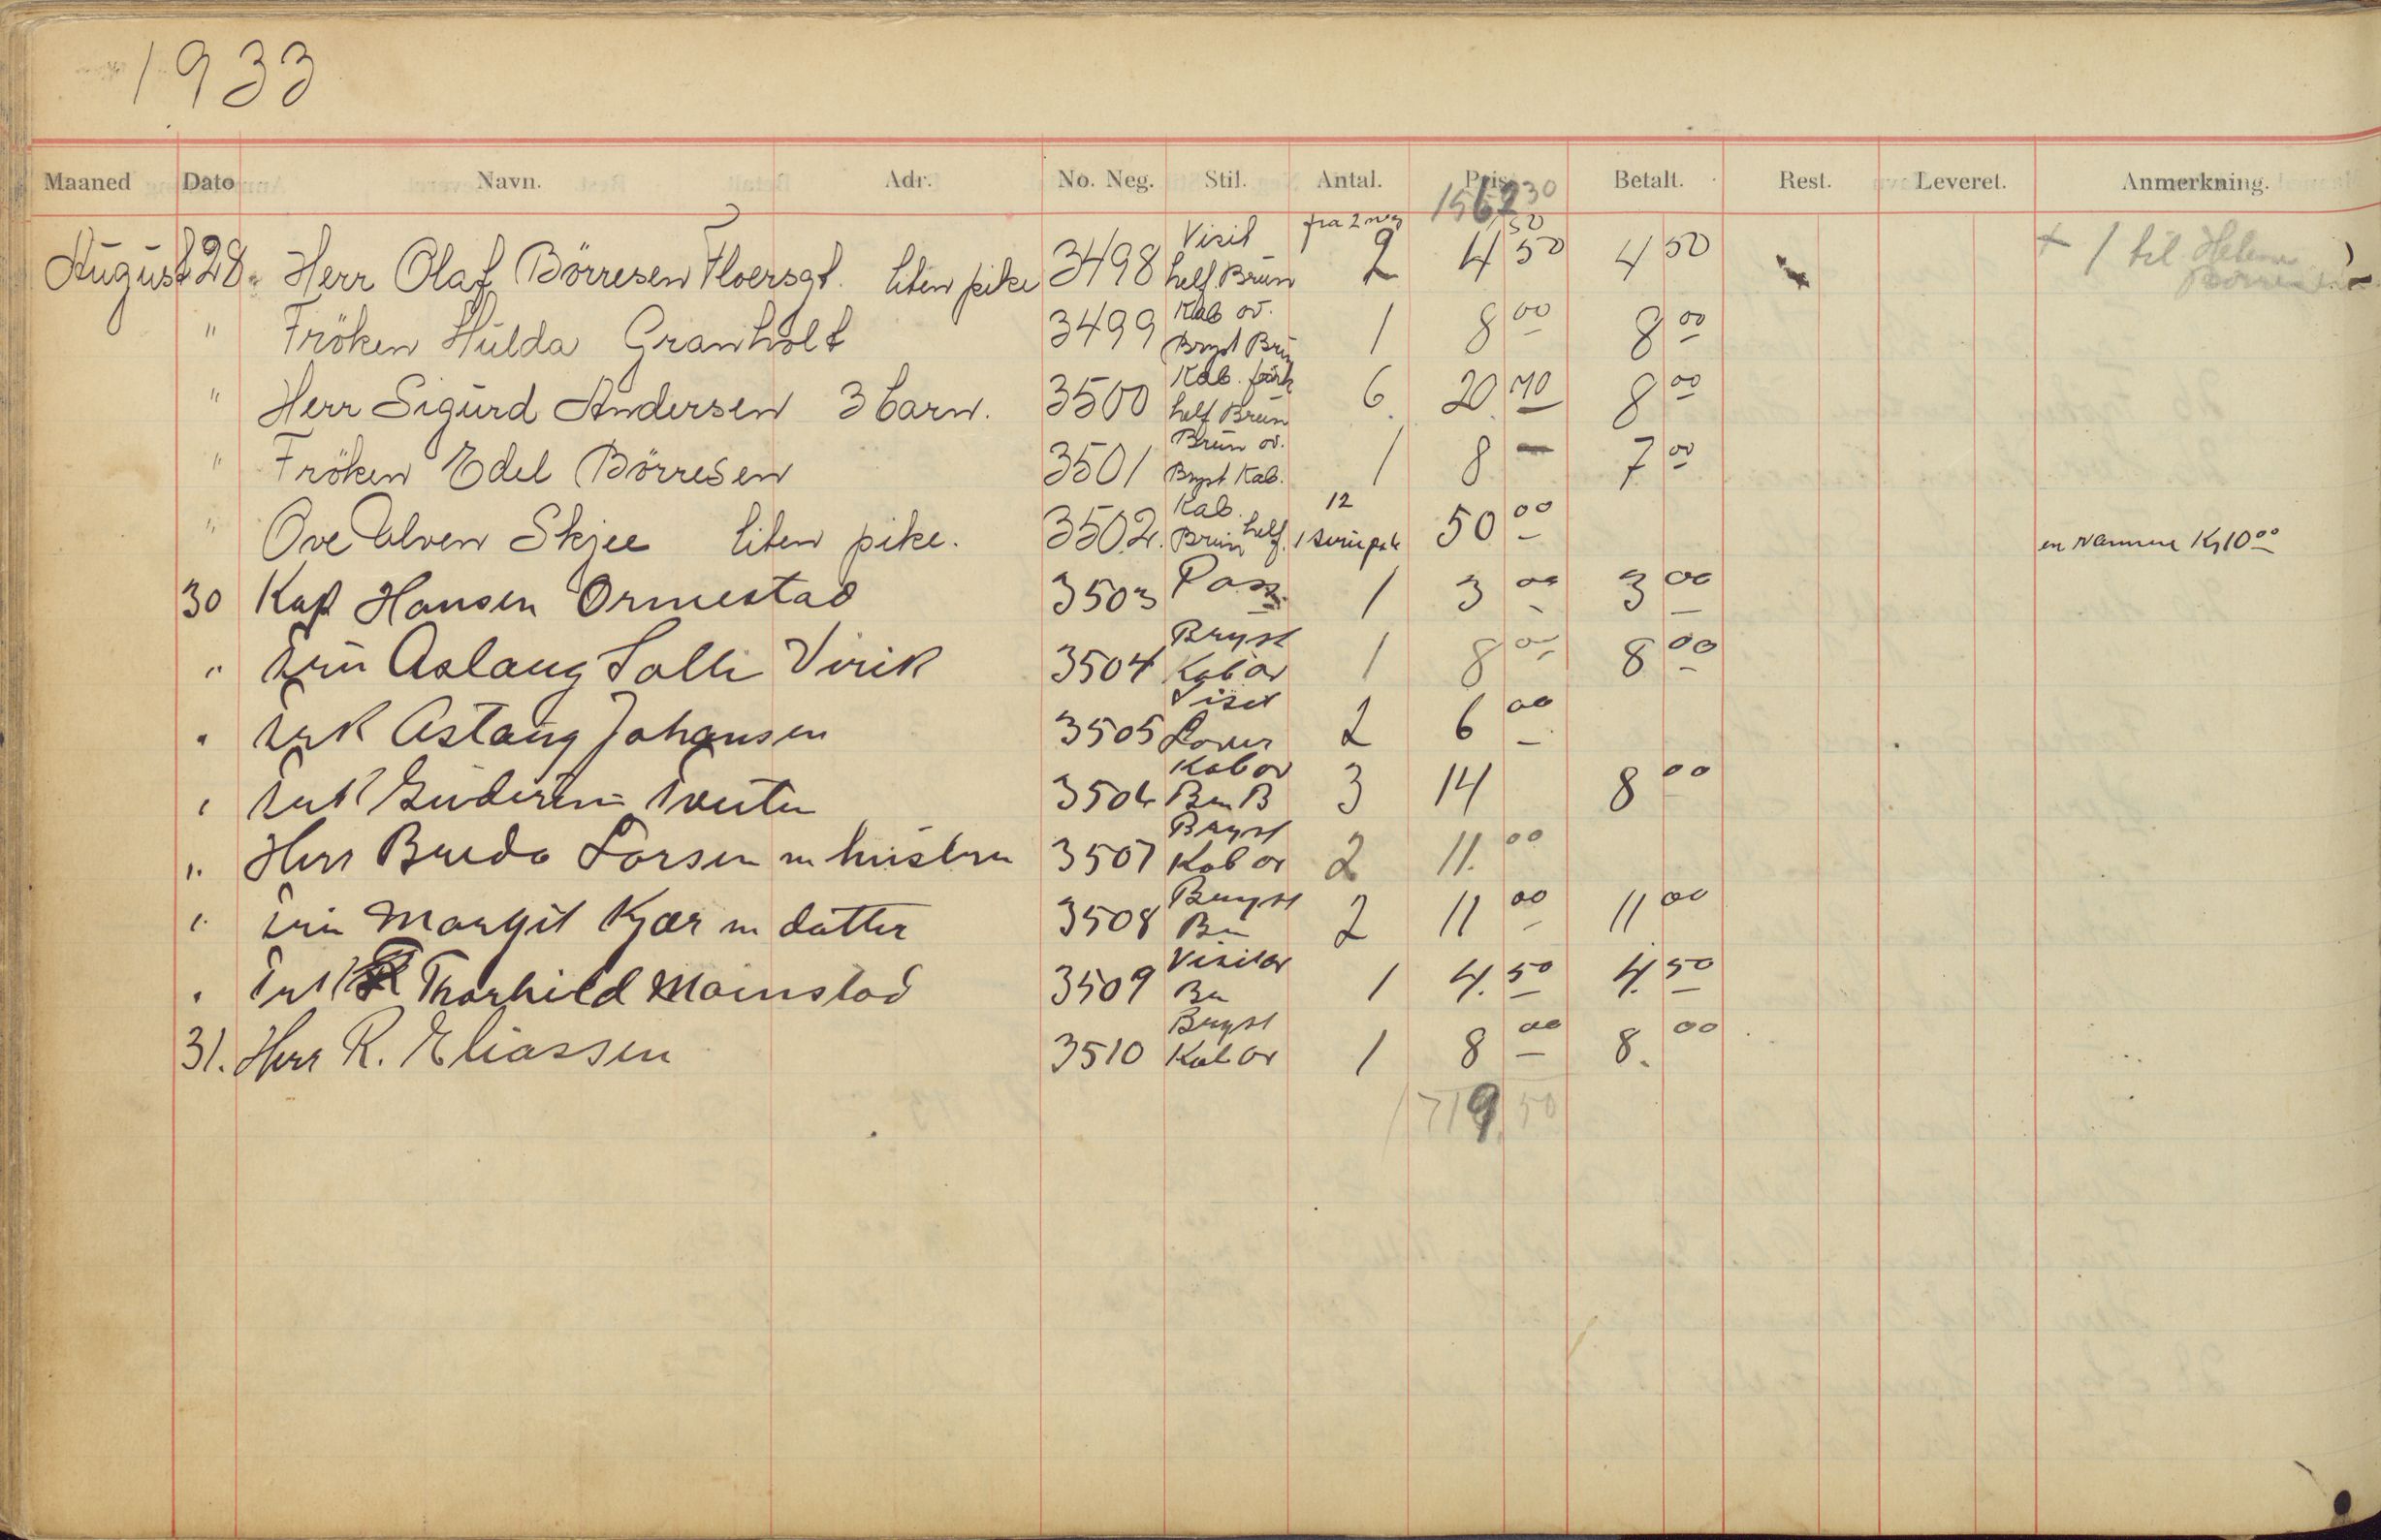 1933
Maaned Dato Navn. Adr. No. Neg. Stil. Antal. Pris. Betalt. Rest. Leveret. Anmerkning.
1562 30
August 28. Herr Olaf Börresen Floersgt. liten pike 3498 Visit helf Brun fra 2 neg 2 4 50 4 50 + 1 til Helene Börresen
" Fröken Hulda Granholt 3499 Kab ov. Bryst Brun 1 8 00 8 00
" Herr Sigurd Andersen 3 barn. 3500 Kab. helf Brun 6. 20. 8 00
" Fröken Edel Börresen 3501 Brun ov. Bryst Kab. 1 8 — 7 00
" Ove Skjee liten pike. 3502. Kab. Brun helf. 12 1 50 00 en Kr 10 00
30 Kap Hansen Ormestad 3503 Pass. 1 3 00 3 00
" Fru Aslaug Solli Virik 3504 Bryst Kab ov 1 8 00 8 00
" Frk Astaug Johansen 3505 Visit 2 6 00
" Frk Tveiten 3506 Kab ov Bru B 3 14 8 00
" Herr Breda Larsen m hustru 3507 Bryst Kab ov 2 11. 00
" Fru Margit Kjær m datter 3508 Bryst Bru 2 11 00 11 00
" Frk Thorhild Moinstad 3509 Visit ov Bru 1 4. 50 4. 50
31. Herr R. Eliassen 3510 Bryst Kab ov 1 8 00 8. 00
1719. 50